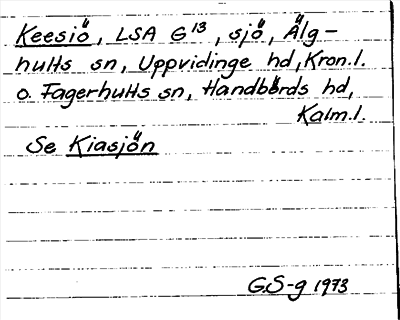 Keesiö, LSA G¹³, sjö, Älg-
hults sn, Uppvidinge hd, Kron.l.
o. Fagerhults sn, Handbörds hd,
Kalm.l.
Se Kiasjön
GS-g 1973